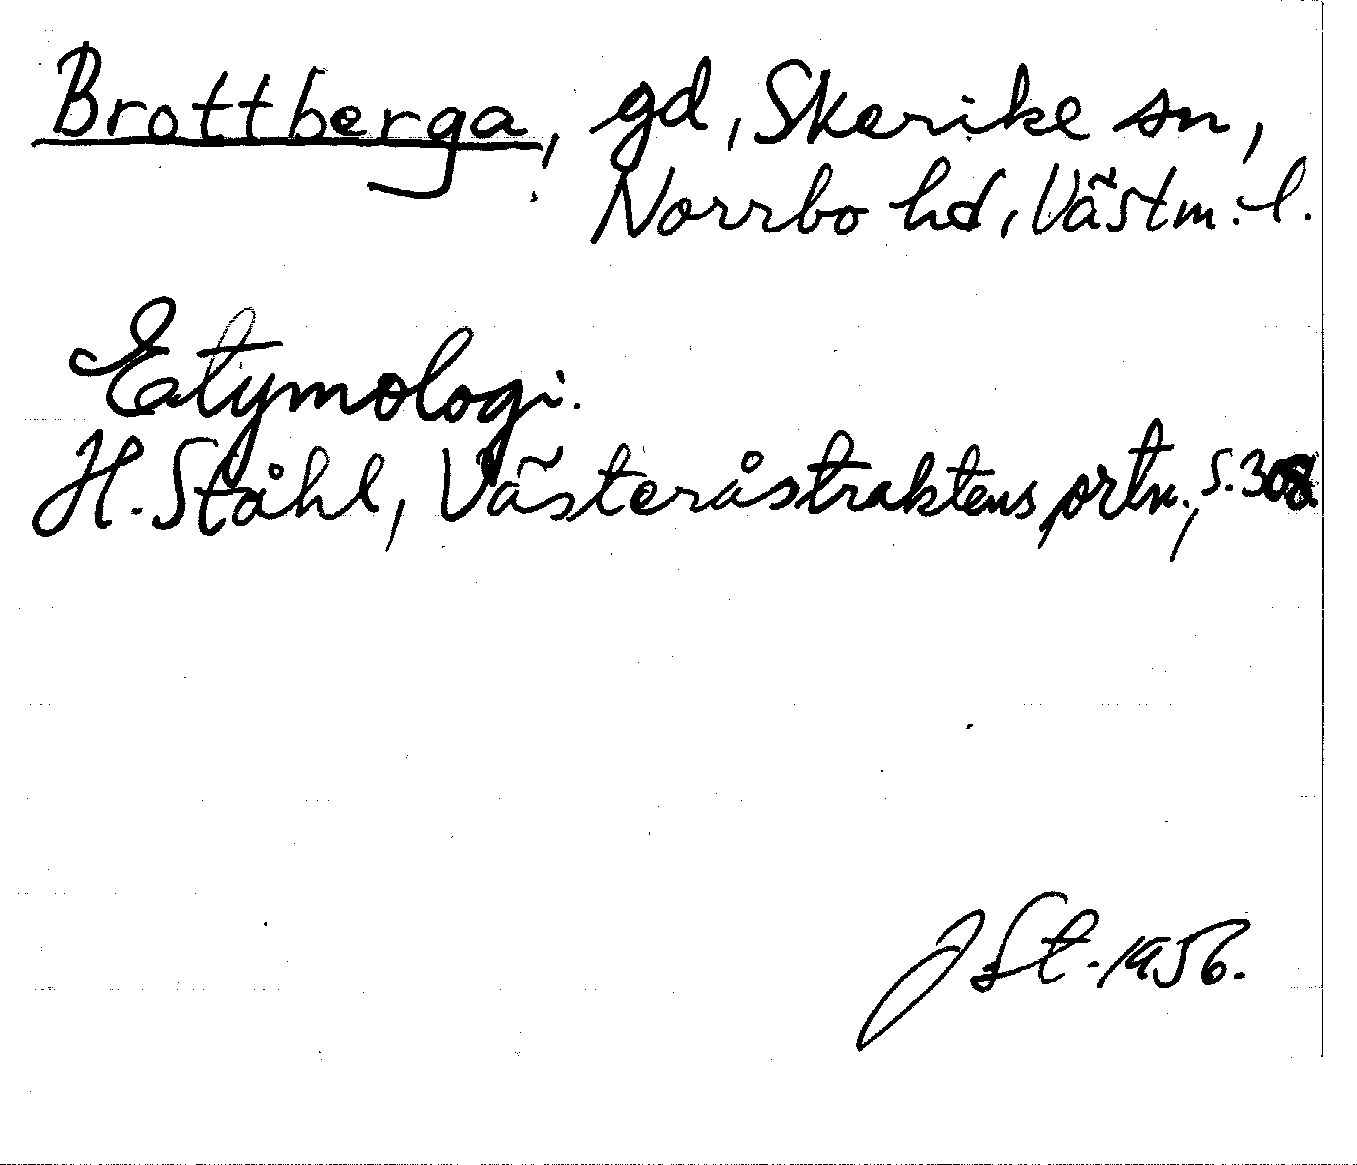 Brottberga, gd, Skerike sn,
Norrbo hd, Västm. l.
Etymologi.
H. Ståhl, Västeråstraktens ortn., s. 308.
J St. 1956.